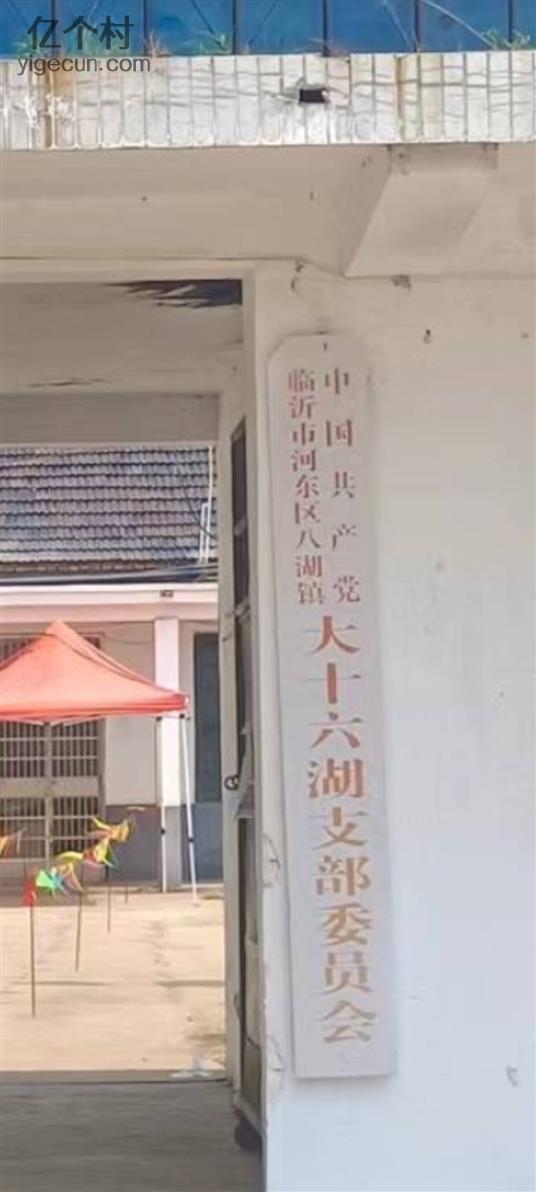 亿个村
yigecun.com
中国共产党
临沂市河东区八湖镇
大十六湖支部委员会